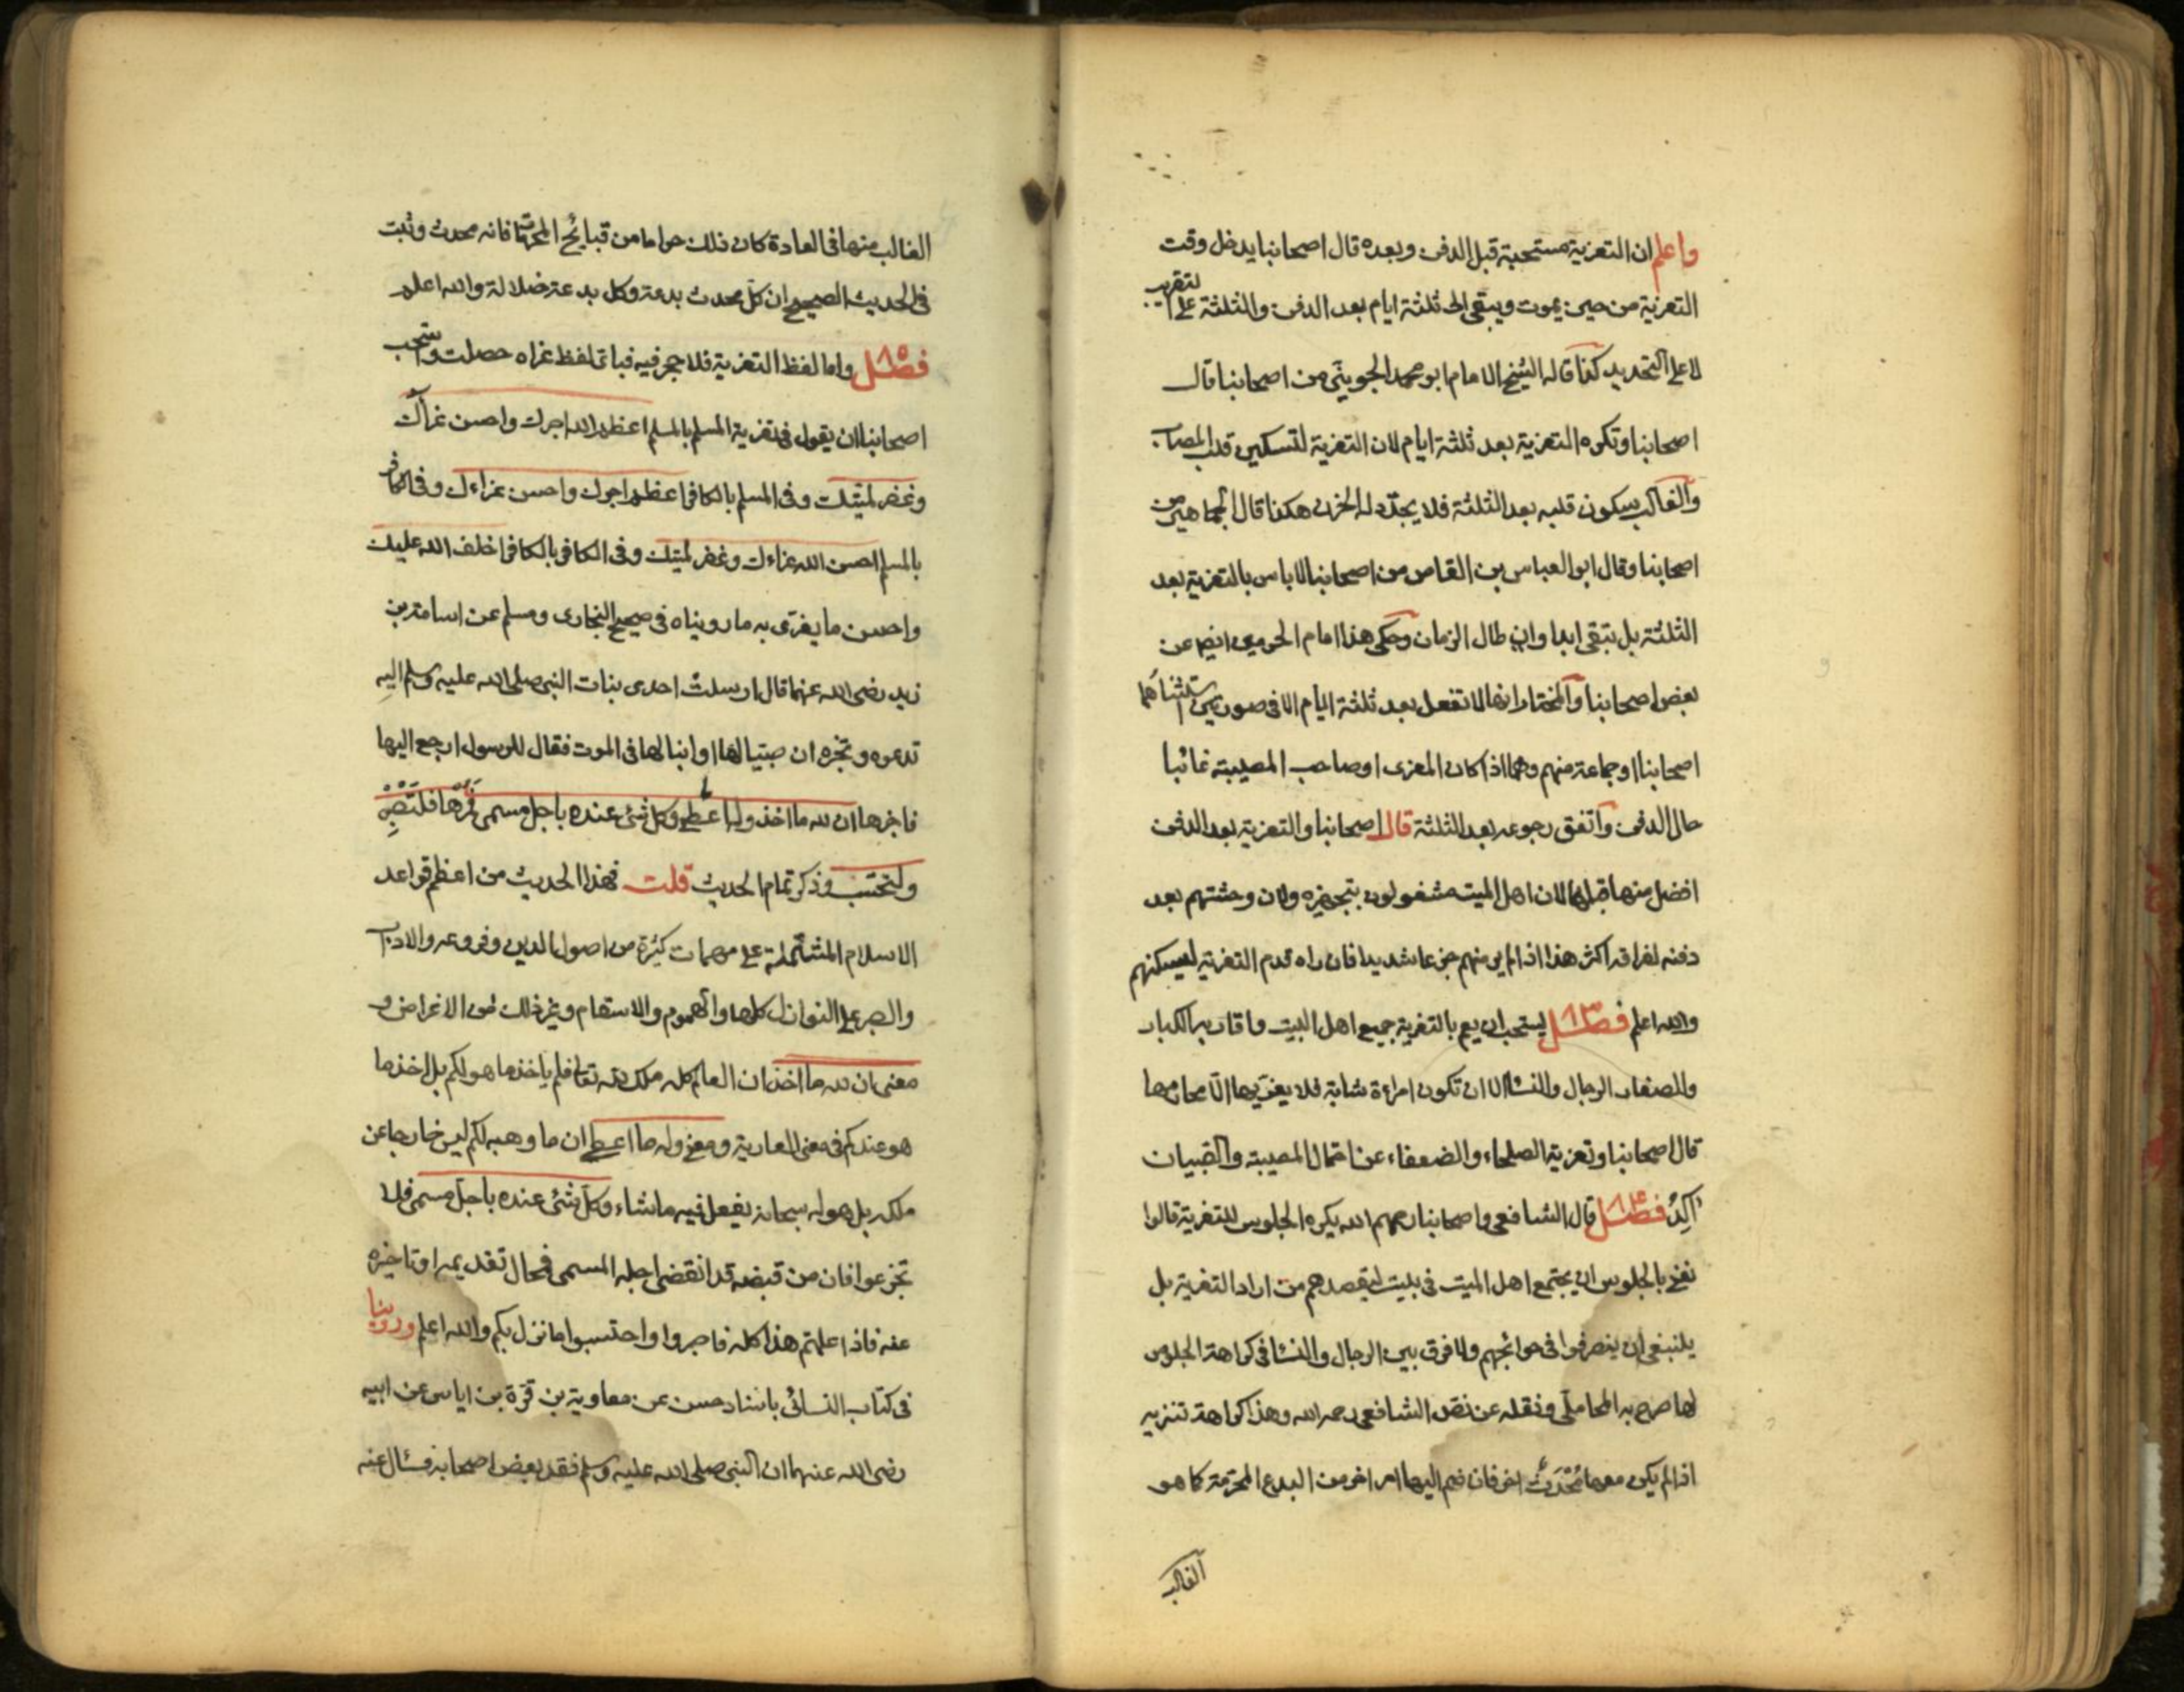 واعلم ان التعزية مستحبة قبل الدفن وبعده قال اصحابنا يدخل وقت
التعزية من حين يموت ويبقى الى ثلثة ايام بعد الدفن والثلثة على التقريب
لا على التحديد كذا قاله الشيخ الامام ابو محمد الجويني من اصحابنا قال
اصحابنا وتكره التعزية بعد ثلثة ايام لان التعزية لتسكين قلب المصاب
والغالب سكون قلبه بعد الثلثة فلا يجدد له الحزن هكذا قال الجماهير من
اصحابنا وقال ابو العباس بن القاص من اصحابنا لا باس بالتعزية بعد
الثلثة بل تبقى ابدا وان طال الزمان وحكى هذا امام الحرمين ايضا عن
بعض اصحابنا والمختار انها لا تفعل بعد ثلثة ايام الا في صورتين استثناهما
اصحابنا او جماعة منهم وهما اذا كان المعزى او صاحب المصيبة غائبا
حال الدفن واتفق رجوعه بعد الثلثة قال اصحابنا والتعزية بعد الدفن
افضل منها قبله لان اهل الميت مشغولون بتجهيزه ولان وحشتهم بعد
دفنه لفراقه اكثر هذا اذا لم ير منهم جزعا شديدا فان راه قدم التعزية ليسكنهم
والله اعلم فصل ٨٣ يستحب ان يعم بالتعزية جميع اهل البيت واقاربه الكبار
والصغار الرجال والنسا الا ان تكون امراءة شابة فلا يعزيها الا محارمها
قال اصحابنا وتعزية الصلحاء والضعفاء عن احتمال المصيبة والصبيان
آكد فصل ٨٤ قال الشافعي واصحابنا رحمهم الله يكره الجلوس للتعزية قالوا
نعني بالجلوس ان يجتمع اهل الميت في بيت ليقصدهم من اراد التعزية بل
ينبغي ان ينصرفوا في حوائجهم ولا فرق بين الرجال والنسا في كراهة الجلوس
لها صرح به المحاملي ونقله عن نص الشافعي رحمه الله وهذا كراهة تنزيه
اذا لم يكن معها مُحْدَثٌ اخر فان ضم اليها امر اخر من البدع المحرمة كما هو
الغالب
الغالب منها في العادة كان ذلك حراما من قبائح المحرمات فانه محدث وثبت
في الحديث الصحيح ان كل محدث بدعة وكل بدعة ضلالة والله اعلم
فصل ٨٥ واما لفظ التعزية فلا حجر فيه فباي لفظ عزاه حصلت واستحب
اصحابنا ان يقول في تعزية المسلم بالمسلم اعظم الله اجرك واحسن عزاك
وغفر لميتك وفي المسلم بالكافر اعظم اجرك واحسن عزاءك وفي الكافر
بالمسلم احسن الله عزاءك وغفر لميتك وفي الكافر بالكافر اخلف الله عليك
واحسن ما يعزى به ما رويناه في صحيح البخاري ومسلم عن اسامة بن
زيد رضى الله عنهما قال ارسلت احدى بنات النبي صلى الله عليه وسلم اليه
تدعوه وتخبره ان صبيا لها او ابنا لها في الموت فقال للرسول ارجع اليها
فاخبرها ان لله ما اخذ وله ما اعطى وكل شئ عنده باجل مسمى فمرها فلتصبر
ولتحتسب وذكر تمام الحديث قلت فهذا الحديث من اعظم قواعد
الاسلام المشتملة على مهمات كثيرة من اصول الدين وفروعه والاداب
والصبر على النوازل كلها والهموم والاسقام وغير ذلك من الاعراض و
معنى ان لله ما اخذ ان العالم كله ملك لله تعالى فلم ياخذ ما هو لكم بل اخذ ما
هو عندكم في معنى العارية ومعنى وله ما اعطى ان ما وهبه لكم ليس خارجا عن
ملكه بل هو له سبحانه يفعل فيه ما شاء وكل شئ عنده باجل مسمى فلا
تجزعوا فان من قبضه قد انقضى اجله المسمى فمحال تقديمه او تاخيره
عنه فاذا علمتم هذا كله فاصبروا واحتسبوا ما نزل بكم والله اعلم وروينا
في كتاب النسائي باسناد حسن عن معاوية بن قرة بن اياس عن ابيه
رضى الله عنهما ان النبي صلى الله عليه وسلم فقد بعض اصحابه فسال عنه